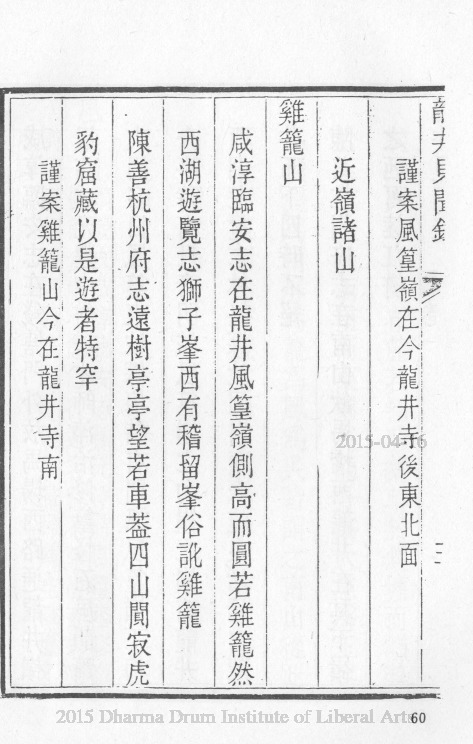 龍井見聞錄
謹案風篁嶺在今龍井寺後東北面
近嶺諸山
雞籠山
咸淳臨安志在龍井風篁嶺側高而圓若雞籠然
西湖遊覽志獅子峯西有稽留峯俗訛雞籠
陳善杭州府志遠樹亭亭望若車葢四山闃寂虎
豹窟藏以是遊者特罕
謹案雞籠山今在龍井寺南
2015-04-16
2015 Dharma Drum Institute of Liberal Arts
60